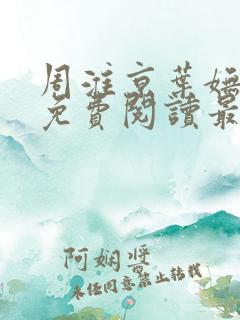 周淮京葉嫵
免費閱讀最
阿嫻醬
未经同意禁止转载